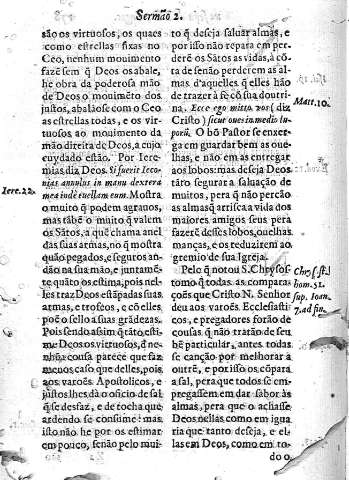 Sermão 2.
são os virtuosos, os quaes
como estrellas fixas no
Ceo, nenhum mouimento
fazẽ sem q̃ Deos os abale,
he obra da poderosa mão
de Deos o mouimẽto dos
justos, abalãose com o Ceo
as estrellas todas, e os vir-
tuosos ao mouimento da
mão direita de Deos, a cujo
cuydado estão. Por Iere-
mias diz Deos. Si fuerit Ieco-
nias annulus in manu dextera
mea indè euellam eum. Mostra
o muito q̃ podem agrauos,
mas tãbẽ o muito q̃ valem
os Sãtos, a que chama anel
das suas armas, no q̃ mostra
quão pegados, e seguros an-
dão na sua mão, e juntamẽ-
te quãto os estima, pois nel-
les traz Deos estãpadas suas
armas, e trofeos, e cõ elles
poẽ o sello a suas grãdezas.
Pois sendo assim q̃ tãto esti-
me Deos os virtuosos, d' ne-
nhũa cousa parece que faz
menos caso que delles, pois
aos varoẽs Apostolicos, e
justos lhes dà o oficio de sal
q̃ se desfaz, e de tocha que
ardendo se consume: mas
isto não he por os estimar
em pouco, senão pelo mui-
Iere. 22.
to q̃ deseja saluar almas, e
por isso não repara em per-
derẽ os Sãtos as vidas, à cõ-
ta de senão perderem as al-
mas d'aquelles q̃ elles hão
de trazer à fè cõ sua doutri-
na. Ecce ego mitto vos (diz
Cristo) sicut oues in medio lu-
porũ. O bõ Pastor se enxer-
ga em guardar bem as oue-
lhas, e não em as entregar
aos lobos: mas deseja Deos
tãto segurar a saluação de
muitos, pera q̃ não percão
as almas q̃ arrisca a vida dos
maiores amigos seus pera
fazerẽ desses lobos, ouelhas
manças, e os reduzirem ao
gremio de sua Igreja.
Pelo q̃ notou S. Chrysos-
tomo q̃ todas as compara-
çoẽs que Cristo N. Senhor
deu aos varoẽs Ecclesiasti-
cos, e pregadores forão de
cousas q̃ não tratão de seu
bẽ particular, antes todas
se canção por melhorar a
outrẽ, e por isso os cõpara
a sal, pera que todos se em-
pregassem em dar sabor às
almas, pera que o achasse
Deos nellas como em igua-
ria que tanto deseja, e el-
las em Deos, como em to-
do o
Matt. 10.
Chrys. st.
hom. 51.
sup. Ioan.
7. ad fin.